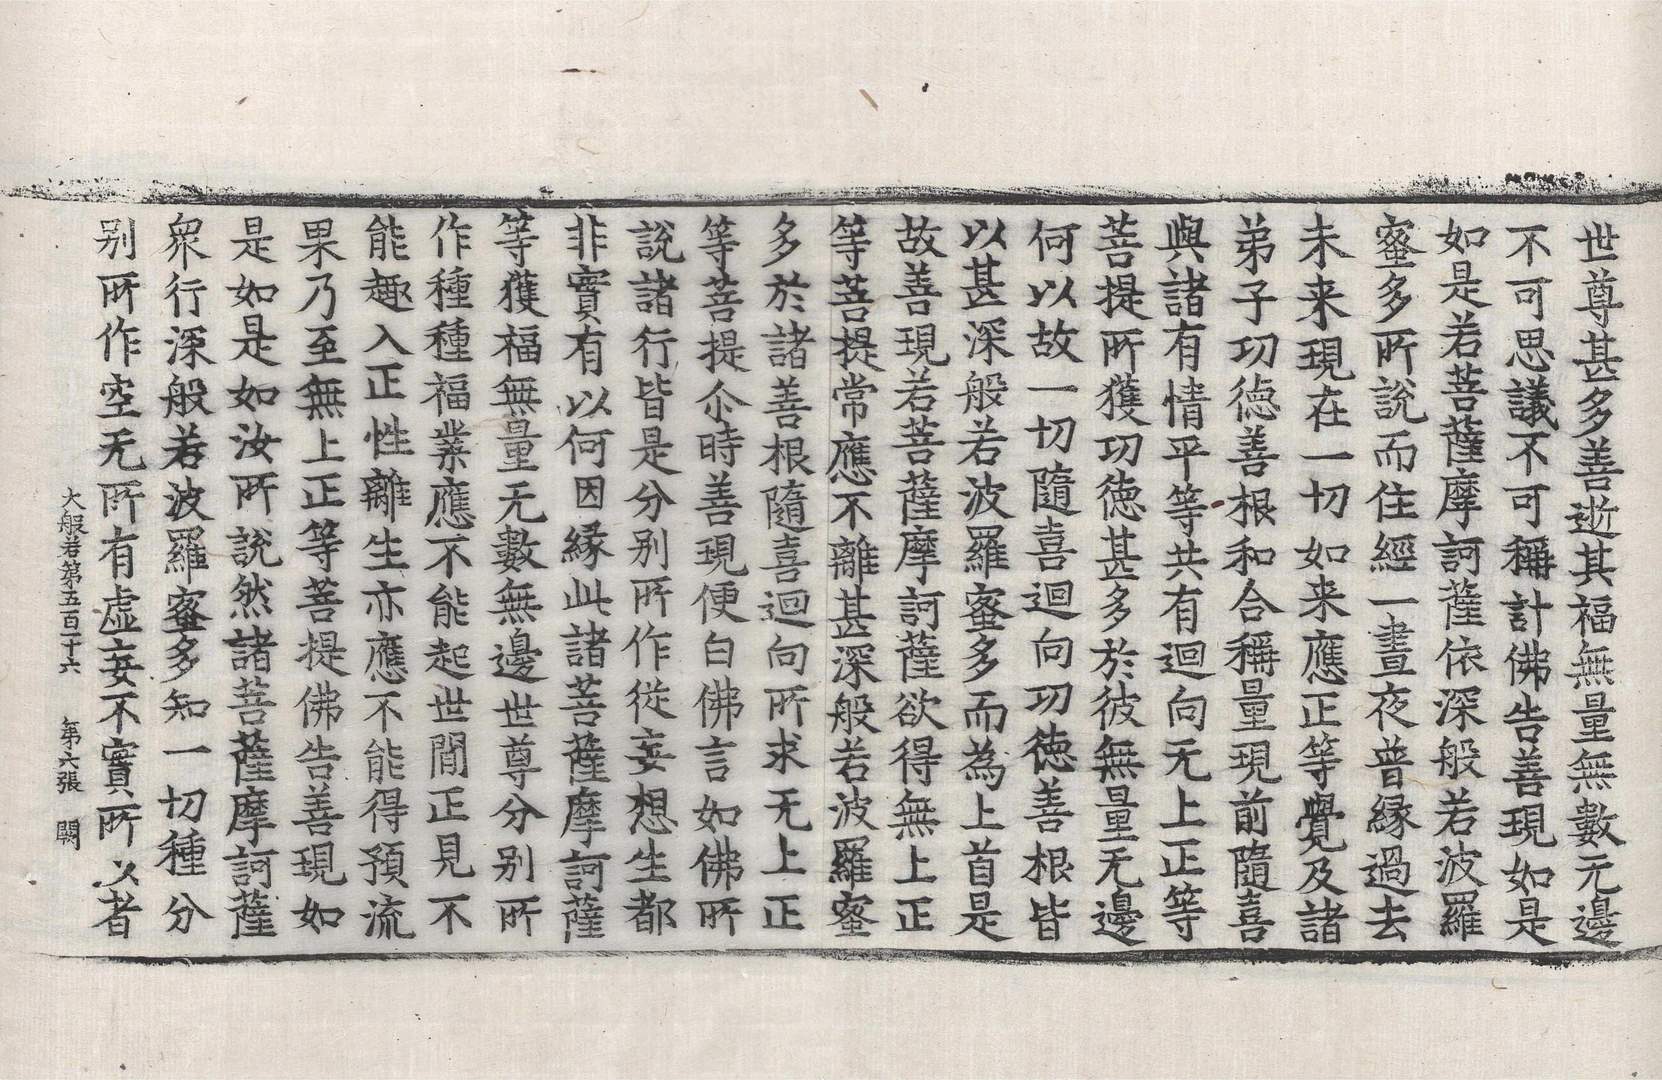 世尊甚多善逝其福無量無數无邊
不可思議不可稱計佛告善現如是
如是若菩薩摩訶薩依深般若波羅
蜜多所說而住經一晝夜普緣過去
未来現在一切如来應正等覺及諸
弟子功德善根和合稱量現前隨喜
與諸有情平等共有迴向无上正等
菩提所獲功德甚多於彼無量无邊
何以故一切隨喜迴向功德善根皆
以甚深般若波羅蜜多而為上首是
故善現若菩薩摩訶薩欲得無上正
等菩提常應不離甚深般若波羅蜜
多於諸善根隨喜迴向所求无上正
等菩提尒時善現便白佛言如佛所
說諸行皆是分别所作從妄想生都
非實有以何因緣此諸菩薩摩訶薩
等獲福無量无數無邊世尊分别所
作種種福業應不能起世間正見不
能趣入正性離生亦應不能得預流
果乃至無上正等菩提佛告善現如
是如是如汝所說然諸菩薩摩訶薩
衆行深般若波羅蜜多知一切種分
别所作空无所有虚妄不實所以者
大般若第五百十六 第六張 闕